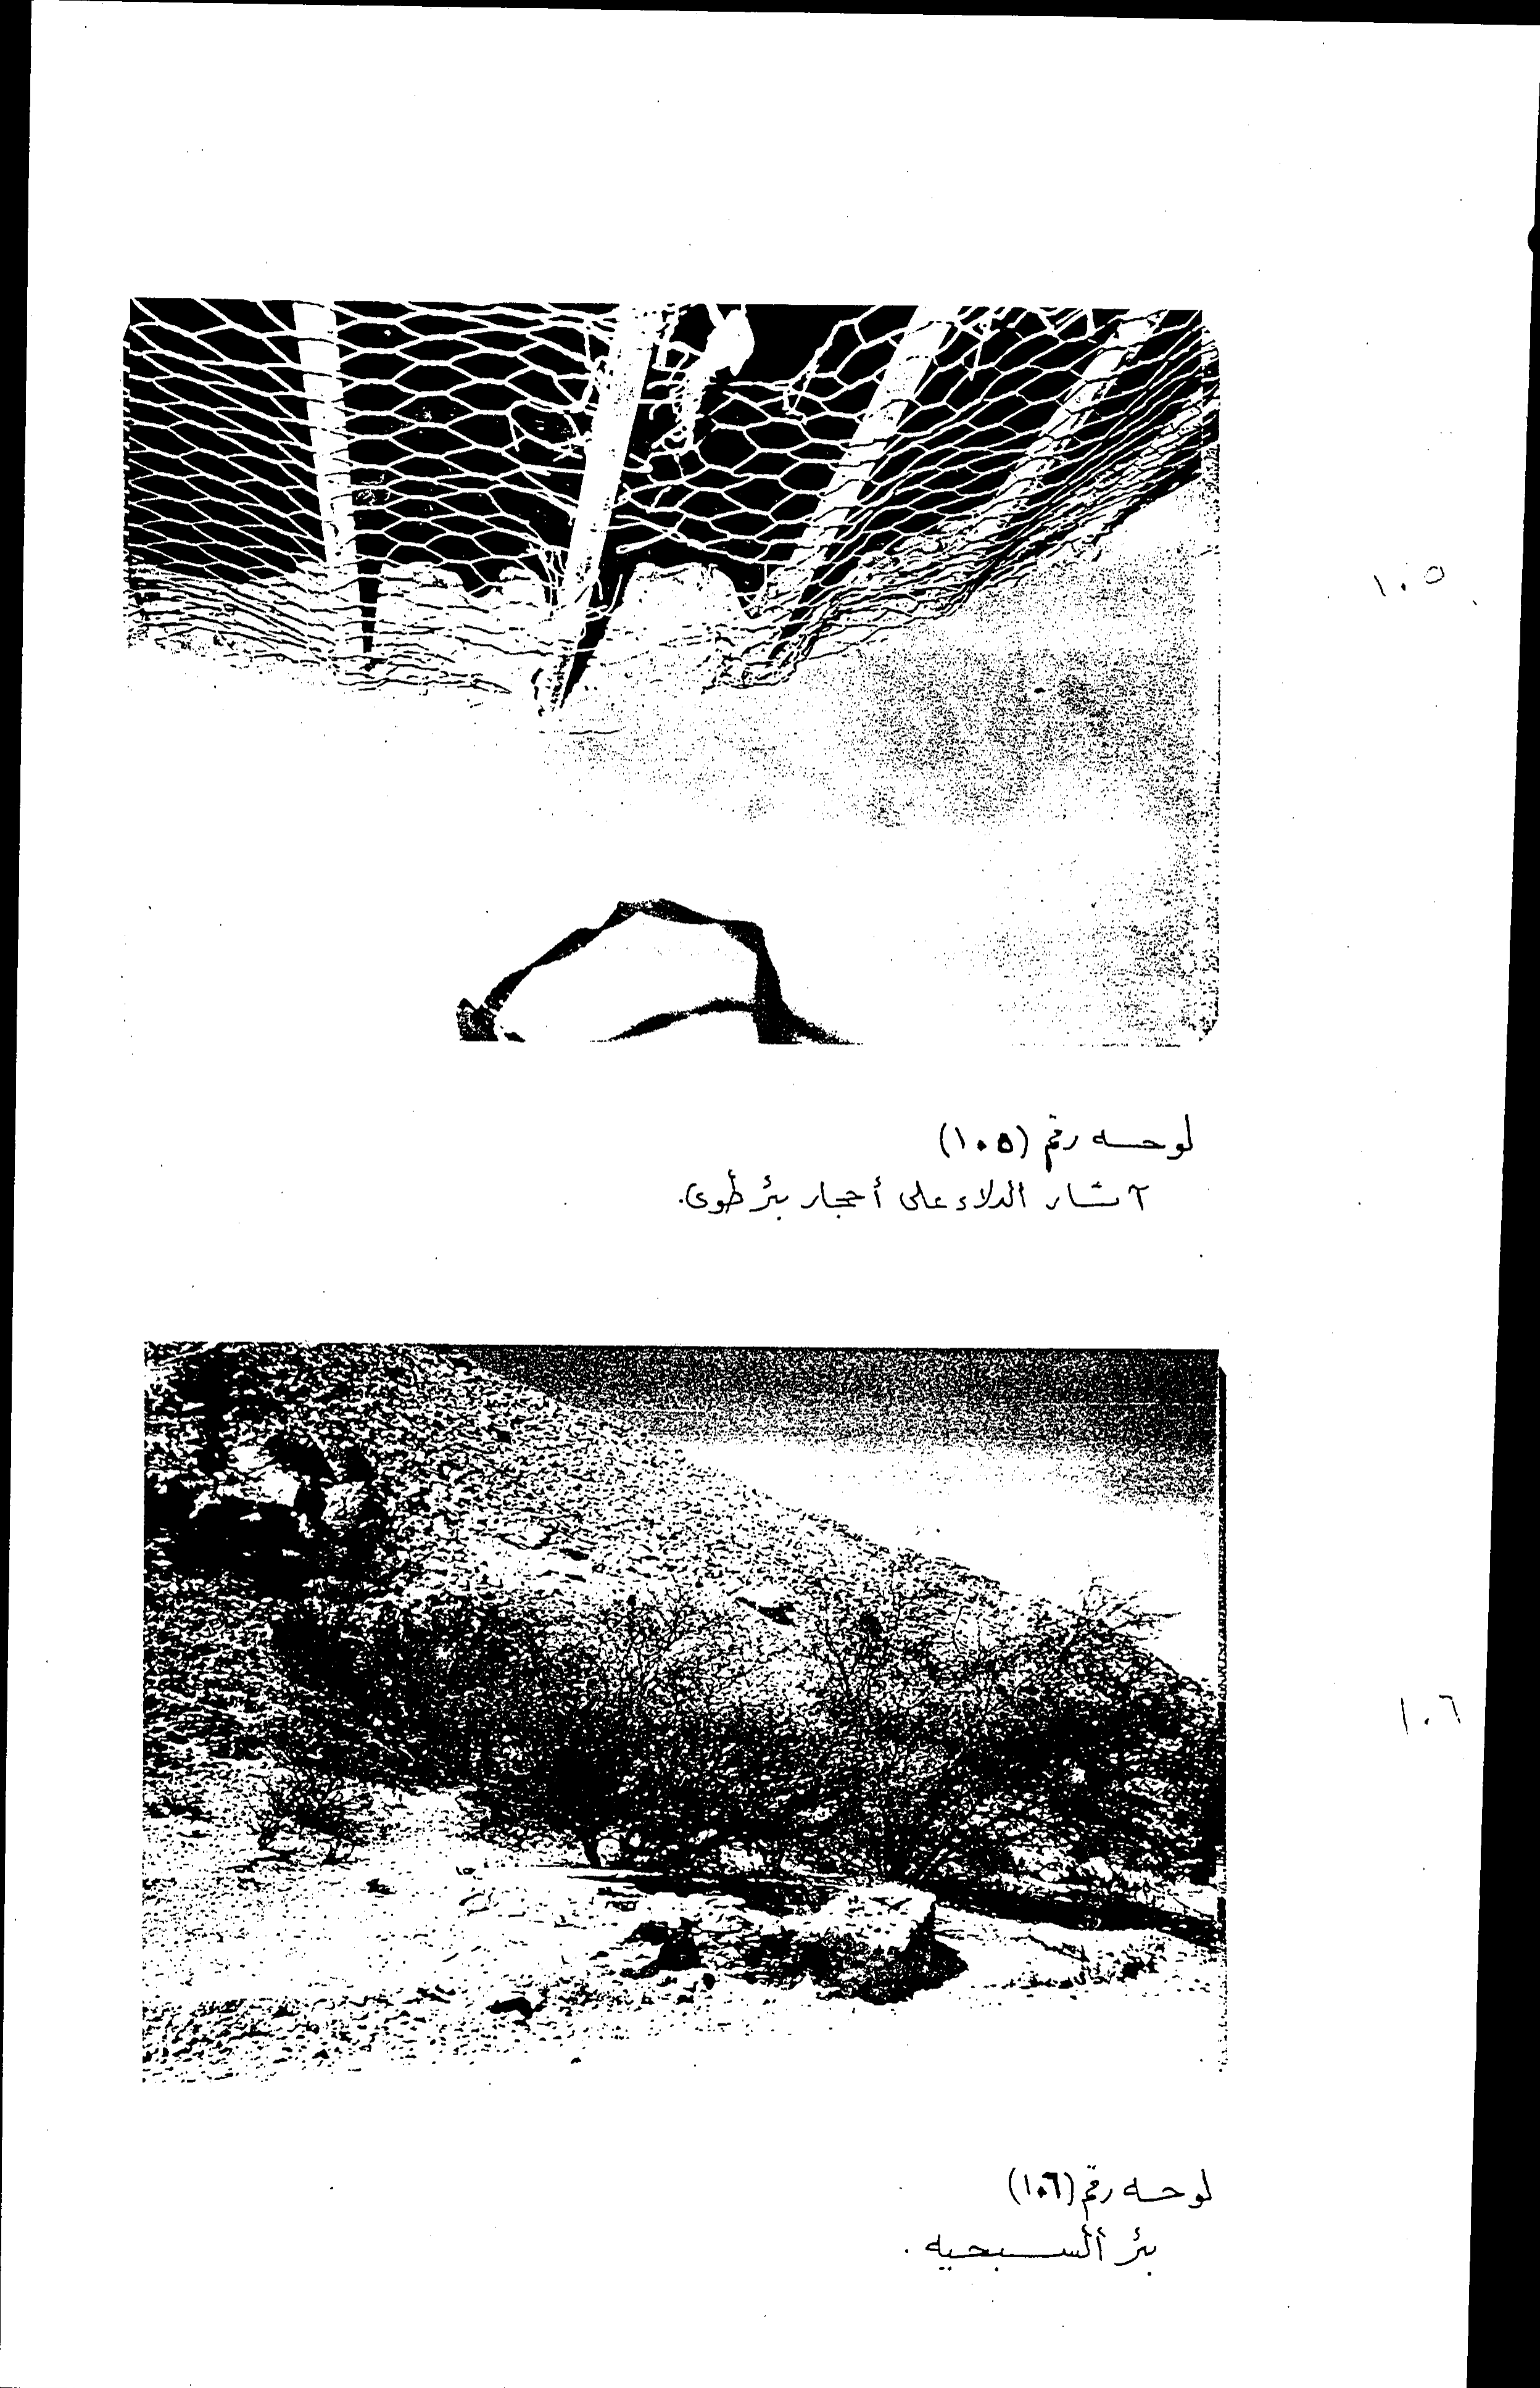 ١٠٥
لوحه رقم (١٠٥)
آثار الدلاء على أحجار بئر طوى.
١٠٦
لوحه رقم (١٠٦)
بئر السبحيه.